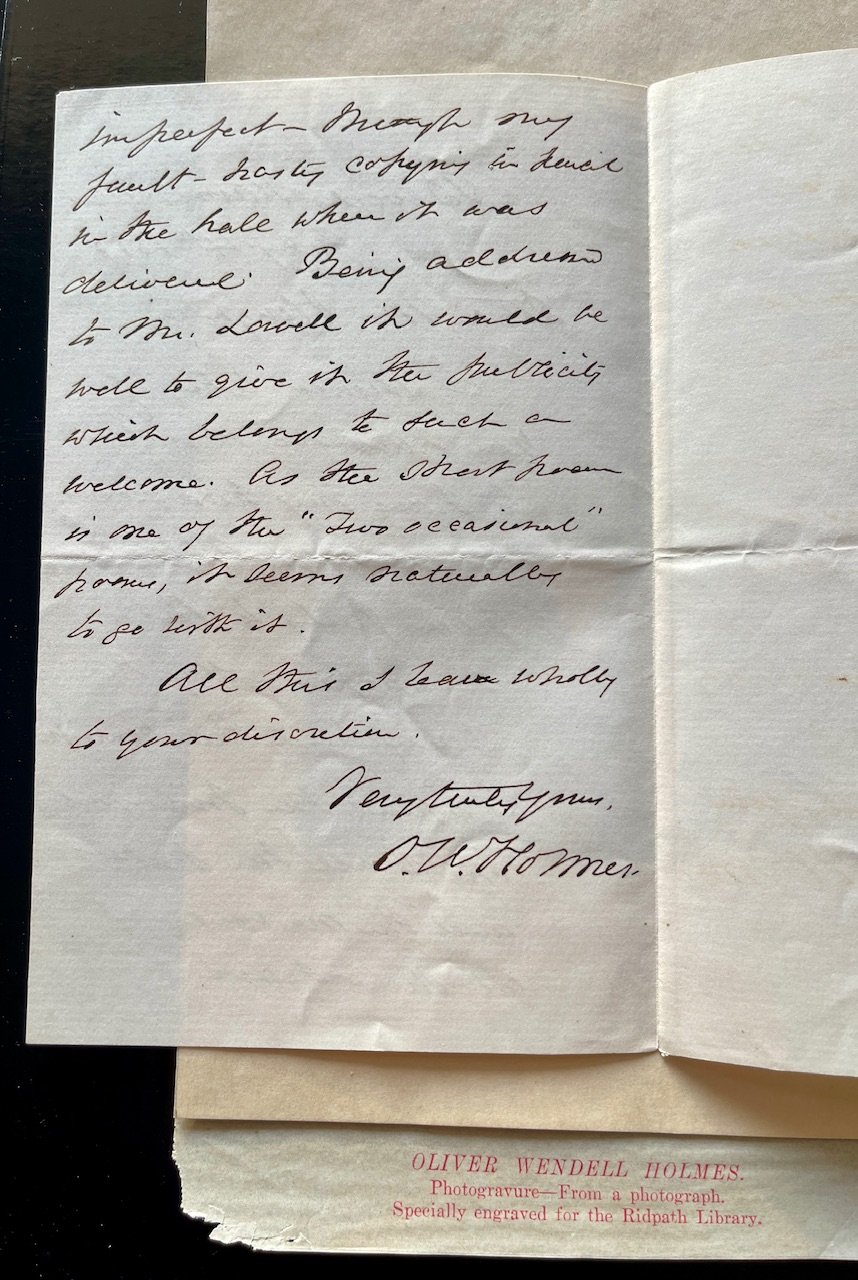 imperfect – through my
fault – hasty copying in pencil
in the hall when it was
delivered. Being addressed
to Mr. Lowell it would be
well to give it the publicity
which belongs to such a
welcome. As the short poem
is one of the "Two occasional"
poems, it seems naturally
to go with it.
All this I leave wholly
to your discretion.
Very truly yours,
O. W. Holmes.
OLIVER WENDELL HOLMES.
Photogravure—From a photograph.
Specially engraved for the Ridpath Library.